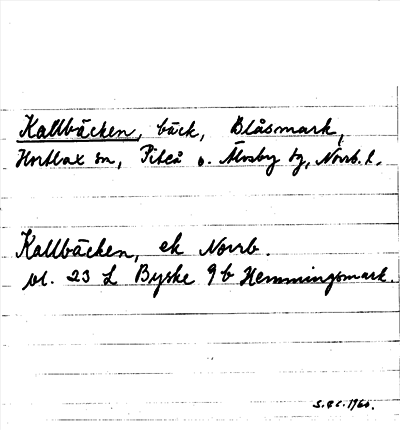 Kallbäcken, bäck, Blåsmark,
Hortlax sn, Piteå o. Älvsby tg, Norrb. l.
Kallbäcken, ek Norrb.
bl. 23 L Byske 9 b Hemmingsmark.
1960.